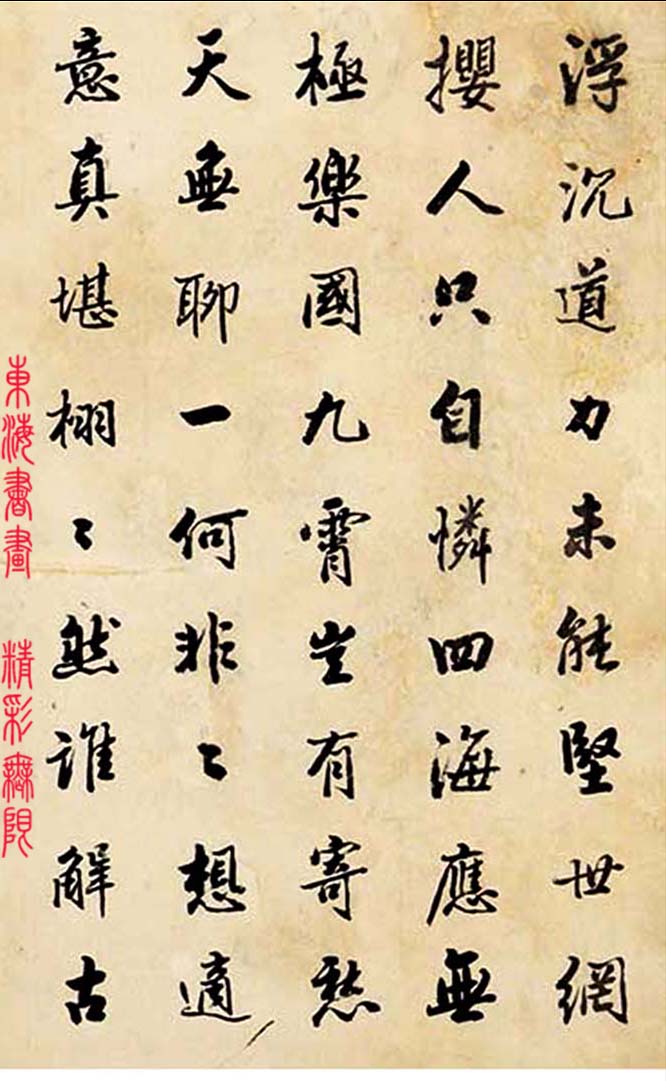 浮沉道力未能堅世網
攖人只自憐四海應無
極樂國九霄豈有寄愁
天無聊一何非〻想適
意真堪栩〻然誰解古
東海書畫 精彩無限